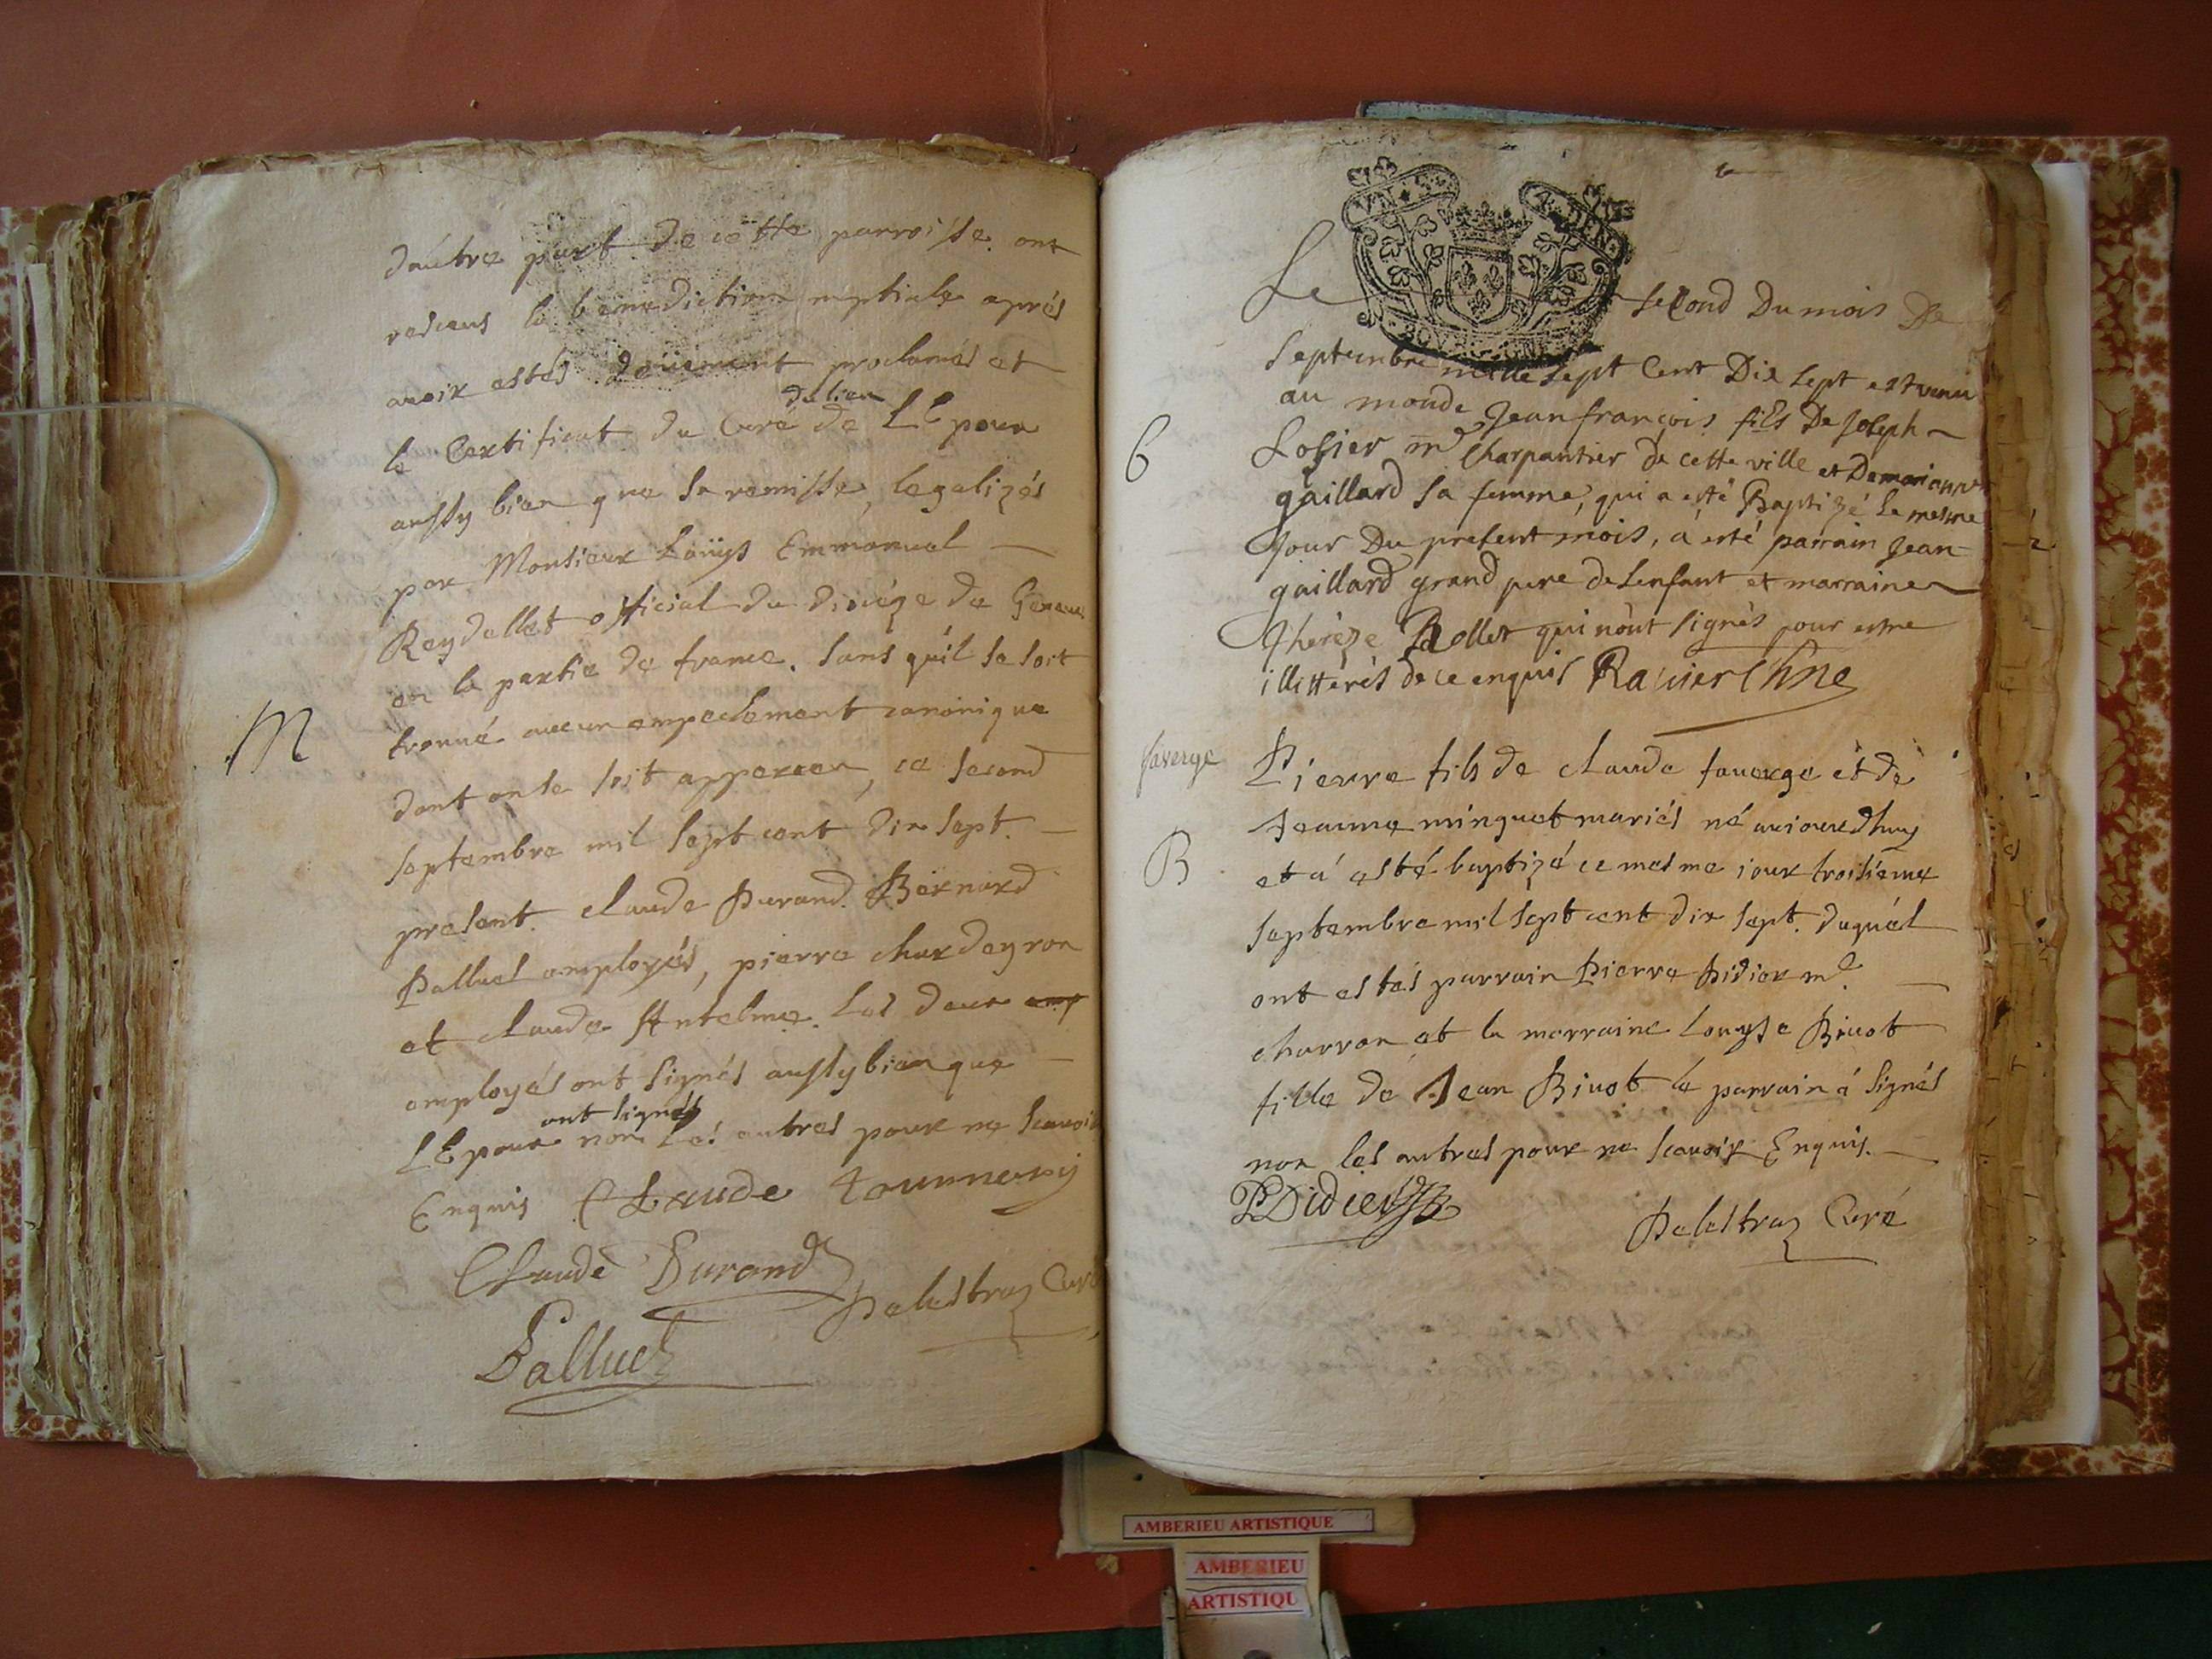 d'autre part de cette parroisse. ont
resceus la benediction nuptiale aprés
avoir estés deüement proclamés et
le Certificat du Curé du lieu de L'Epoux
aussy bien que sa remisse, legalizés
par Monsieur Loüys Emmanuel
Reydellet official du diocéze de Geneve
en la partie de france. sans qu'il se soit
trouvé aucun empechement canonique
dont on se soit apperceu, ce second
septembre mil sept cent dix sept.
present. claude Durand. Bernard
Palluel employés, pierre chardeyron
et claude Antelme. Les deux emp
employés ont signés aussy bien que
L'Epoux ont signés non Les autres pour ne scavoir
Enquis Claude tournery
Claude Durand
Delestraz Curé
Palluel
M
Le second Du mois De
Septembre mille sept Cent Dix sept est venu
au monde Jean françois fils De Joseph
Losier me Charpantier de cette ville et De marianne
gaillard sa femme, qui a esté Baptizé Le mesme
Jour Du present mois, a esté parrain Jean
gaillard grand pere de Lenfant et marraine
Thereze Rollet qui n'ont signés pour estre
illitterés de ce enquis Ravier Chne
B
faverge
Pierre fils de claude faverge et de
Jeanne minguet mariés né aujourdhuy
et a esté baptizé ce mesme jour troisiéme
septembre mil sept cent dix sept. duquel
ont estés parrain Pierre Didier me
charron et la marraine Louyse Bivot
fille de Jean Bivot le parrain a signés
non les autres pour ne scavoir Enquis.
B
P Didier
Delestraz Curé
AMBERIEU ARTISTIQUE
AMBERIEU
ARTISTIQU